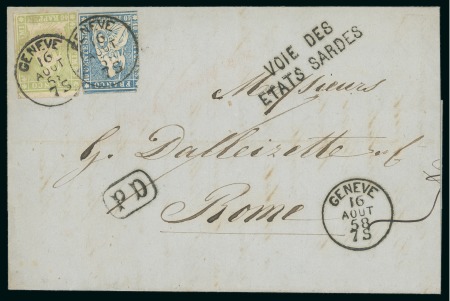 GENEVE
16
AOUT
58
7S
GENEVE
16
AOUT
58
7S
FRANCO
VOIE DES
ETATS SARDES
Messieurs
G. Dalleizette
Rome
PD
GENEVE
16
AOUT
58
7S